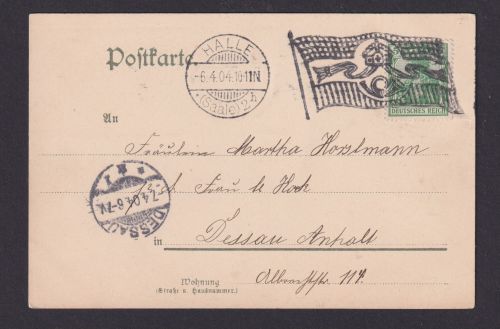 Postkarte.
HALLE
-6.4.04.10-11N.
*(Saale)2*
DEUTSCHES REICH
An
Fräulein Martha Horslmann
Frau
Hock
DESSAU
7.4.04.6-7V.
* 1
in
Dessau Anhalt
Albrechtstr. 114.
Wohnung
(Straße u. Hausnummer.)